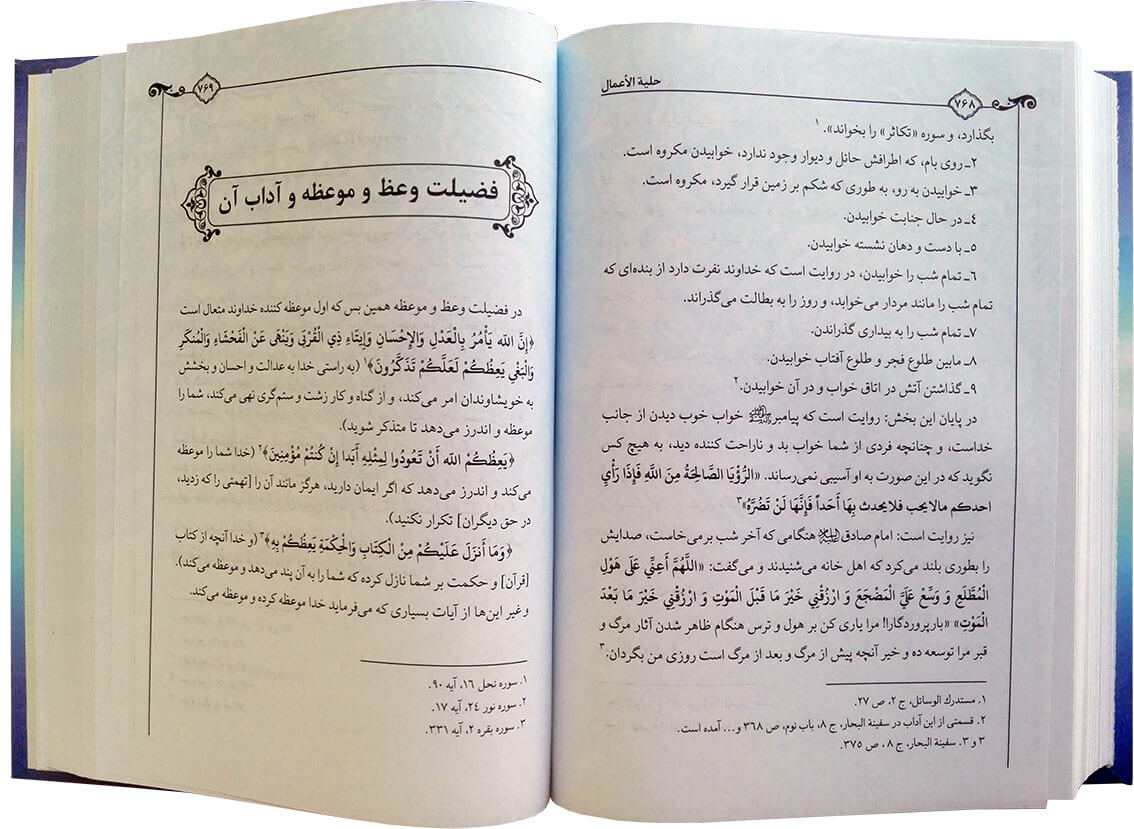 حلیة الأعمال
۷۶۸
بگذارد، و سوره «تکاثر» را بخواند».۱
۲ـ روی بام، که اطرافش حائل و دیوار وجود ندارد، خوابیدن مکروه است.
۳ـ خوابیدن به رو، به طوری که شکم بر زمین قرار گیرد، مکروه است.
٤ـ در حال جنابت خوابیدن.
٥ـ با دست و دهان نشسته خوابیدن.
٦ـ تمام شب را خوابیدن، در روایت است که خداوند نفرت دارد از بنده‌ای که
تمام شب را مانند مردار می‌خوابد، و روز را به بطالت می‌گذراند.
۷ـ تمام شب را به بیداری گذراندن.
۸ـ مابین طلوع فجر و طلوع آفتاب خوابیدن.
۹ـ گذاشتن آتش در اتاق خواب و در آن خوابیدن.۲
در پایان این بخش: روایت است که پیامبر ﷺ خواب خوب دیدن از جانب
خداست، و چنانچه فردی از شما خواب بد و ناراحت کننده دید، به هیچ کس
نگوید که در این صورت به او آسیبی نمی‌رساند. «الرُّؤْیَا الصَّالِحَةُ مِنَ اللَّهِ فَإِذَا رَأَیَ
احدکم مالایحب فلایحدث بِهَا أَحَداً فَإِنَّهَا لَنْ تَضُرَّهُ»۳
نیز روایت است: امام صادق هنگامی که آخر شب بر می‌خاست، صدایش
را بطوری بلند می‌کرد که اهل خانه می‌شنیدند و می‌گفت: «اللَّهُمَّ أَعِنِّی عَلَی هَوْلِ
الْمُطَّلَعِ وَ وَسِّعْ عَلَیَّ الْمَضْجَعَ وَ ارْزُقْنِی خَیْرَ مَا قَبْلَ الْمَوْتِ وَ ارْزُقْنِی خَیْرَ مَا بَعْدَ
الْمَوْتِ» «بارپروردگارا! مرا یاری کن بر هول و ترس هنگام ظاهر شدن آثار مرگ و
قبر مرا توسعه ده و خیر آنچه پیش از مرگ و بعد از مرگ است روزی من بگردان.۳
۱. مستدرك الوسائل، ج ۲، ص ۲۷.
۲. قسمتی از این آداب در سفینة البحار، ج ۸، باب نوم، ص ۳۶۸ و... آمده است.
۳ و ۳. سفینة البحار، ج ۸ ، ص ۳۷۵.
۷۶۹
فضیلت وعظ و موعظه و آداب آن
در فضیلت وعظ و موعظه همین بس که اول موعظه کننده خداوند متعال است
﴿إِنَّ اللّه یَأْمُرُ بِالْعَدْلِ وَالإِحْسَانِ وَإِیتَاءِ ذِي الْقُرْبَی وَیَنْهَی عَنْ الْفَحْشَاءِ وَالْمُنْكَرِ
وَالْبَغْيِ یَعِظُكُمْ لَعَلَّكُمْ تَذَكَّرُونَ﴾۱ (به راستی خدا به عدالت و احسان و بخشش
به خویشاوندان امر می‌کند، و از گناه و کار زشت و ستم‌گری نهی می‌کند، شما را
موعظه و اندرز می‌دهد تا متذکر شوید).
﴿یَعِظُكُمْ اللّه أَنْ تَعُودُوا لِمِثْلِهِ أَبَدا إِنْ كُنتُمْ مُؤْمِنِینَ﴾۲ (خدا شما را موعظه
می‌کند و اندرز می‌دهد که اگر ایمان دارید، هرگز مانند آن را [تهمتی را که زدید،
در حق دیگران] تکرار نکنید).
﴿وَمَا أَنزَلَ عَلَیْكُمْ مِنْ الْكِتَابِ وَالْحِكْمَةِ یَعِظُكُمْ بِهِ﴾۳ (و خدا آنچه از کتاب
[قرآن] و حکمت بر شما نازل کرده که شما را به آن پند می‌دهد و موعظه می‌کند).
و غیر این‌ها از آیات بسیاری که می‌فرماید خدا موعظه کرده و موعظه می‌کند.
۱. سوره نحل ۱۶، آیه ۹۰.
۲. سوره نور ۲۴، آیه ۱۷.
۳. سوره بقره ۲، آیه ۳۳۱.